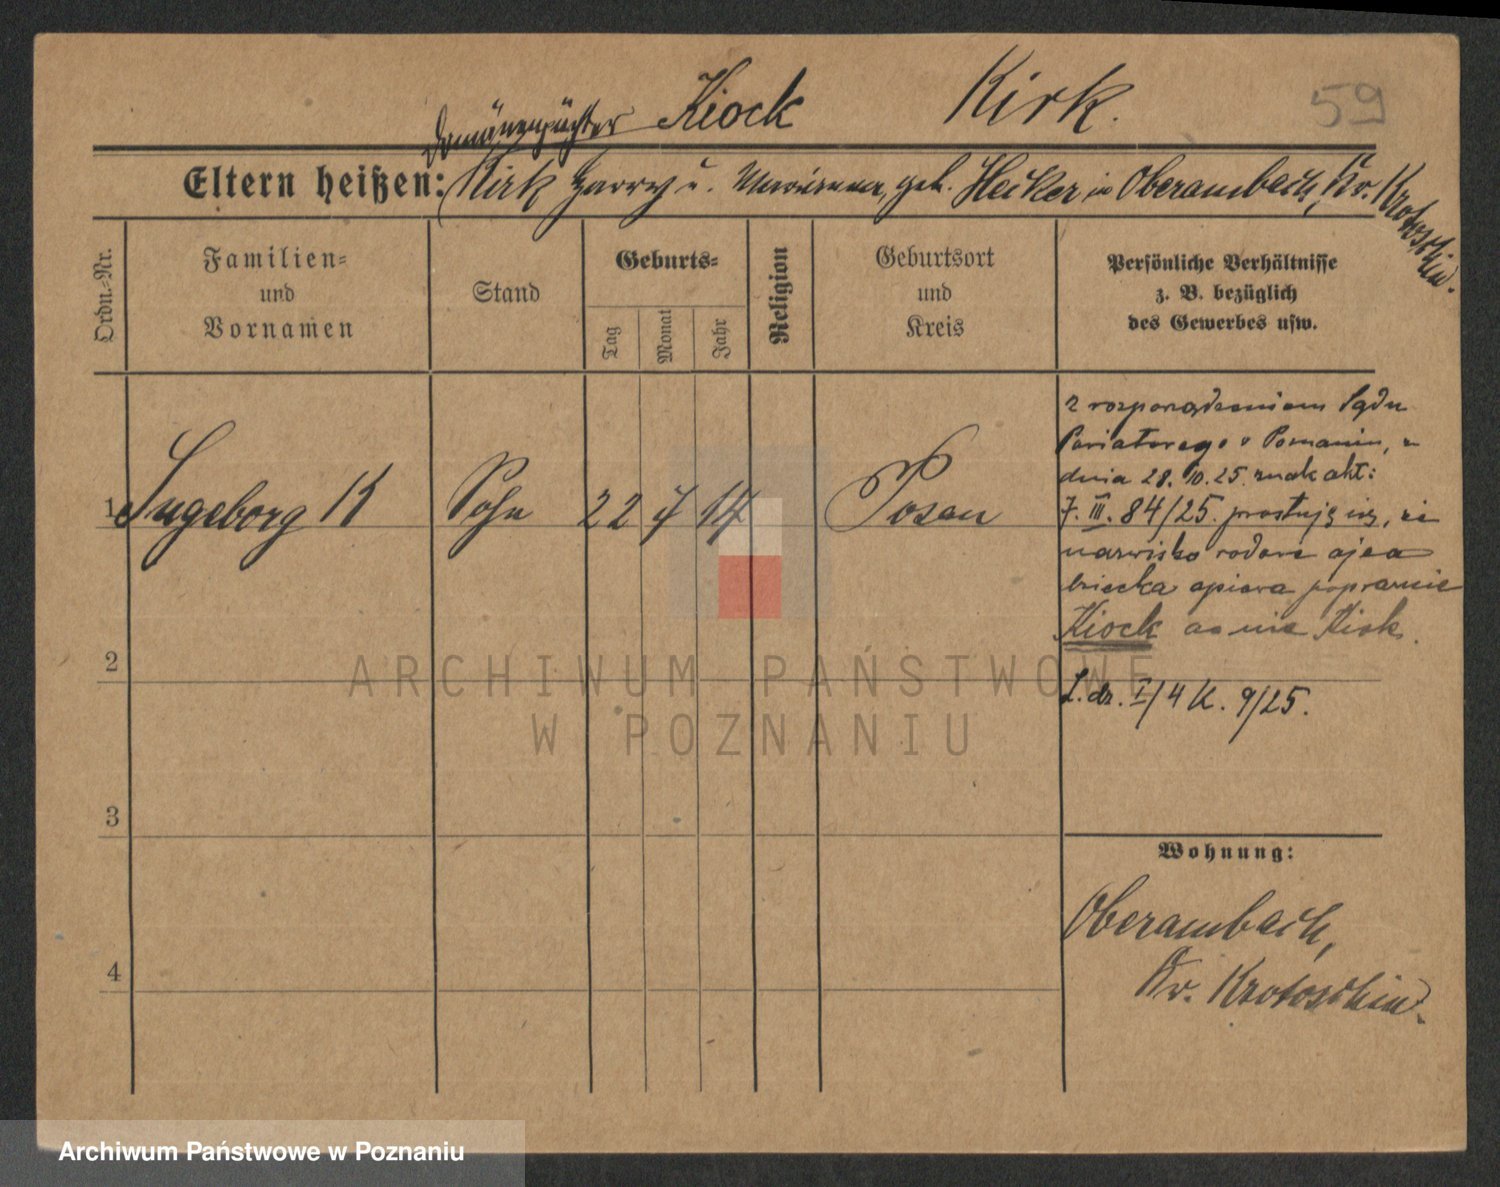 Kiock Kirk. 59
Domänenpächter
Eltern heißen: Kirk Harry u. Marianna, geb. Heiker in Oberambach, Kr. Krotoschin.
Ordn.-Nr.
Familien-
und
Vornamen
Stand
Geburts-
Tag
Monat
Jahr
Religion
Geburtsort
und
Kreis
Persönliche Verhältnisse
z. B. bezüglich
des Gewerbes usw.
1 Ingeborg K Sohn 22 7 14 Posen
z rozporządzeniem Sądu
Powiatowego w Poznaniu, z
dnia 28.10.25. znak akt:
7. III. 84/25. prostuję się, że
nazwisko rodowe ojca
dziecka opiewa poprawnie
Kiock a nie Kirk.
L. dz. I/4 K. 9/25.
2
3
4
Wohnung:
Oberambach,
Kr. Krotoschin.
ARCHIWUM PAŃSTWOWE
W POZNANIU
Archiwum Państwowe w Poznaniu